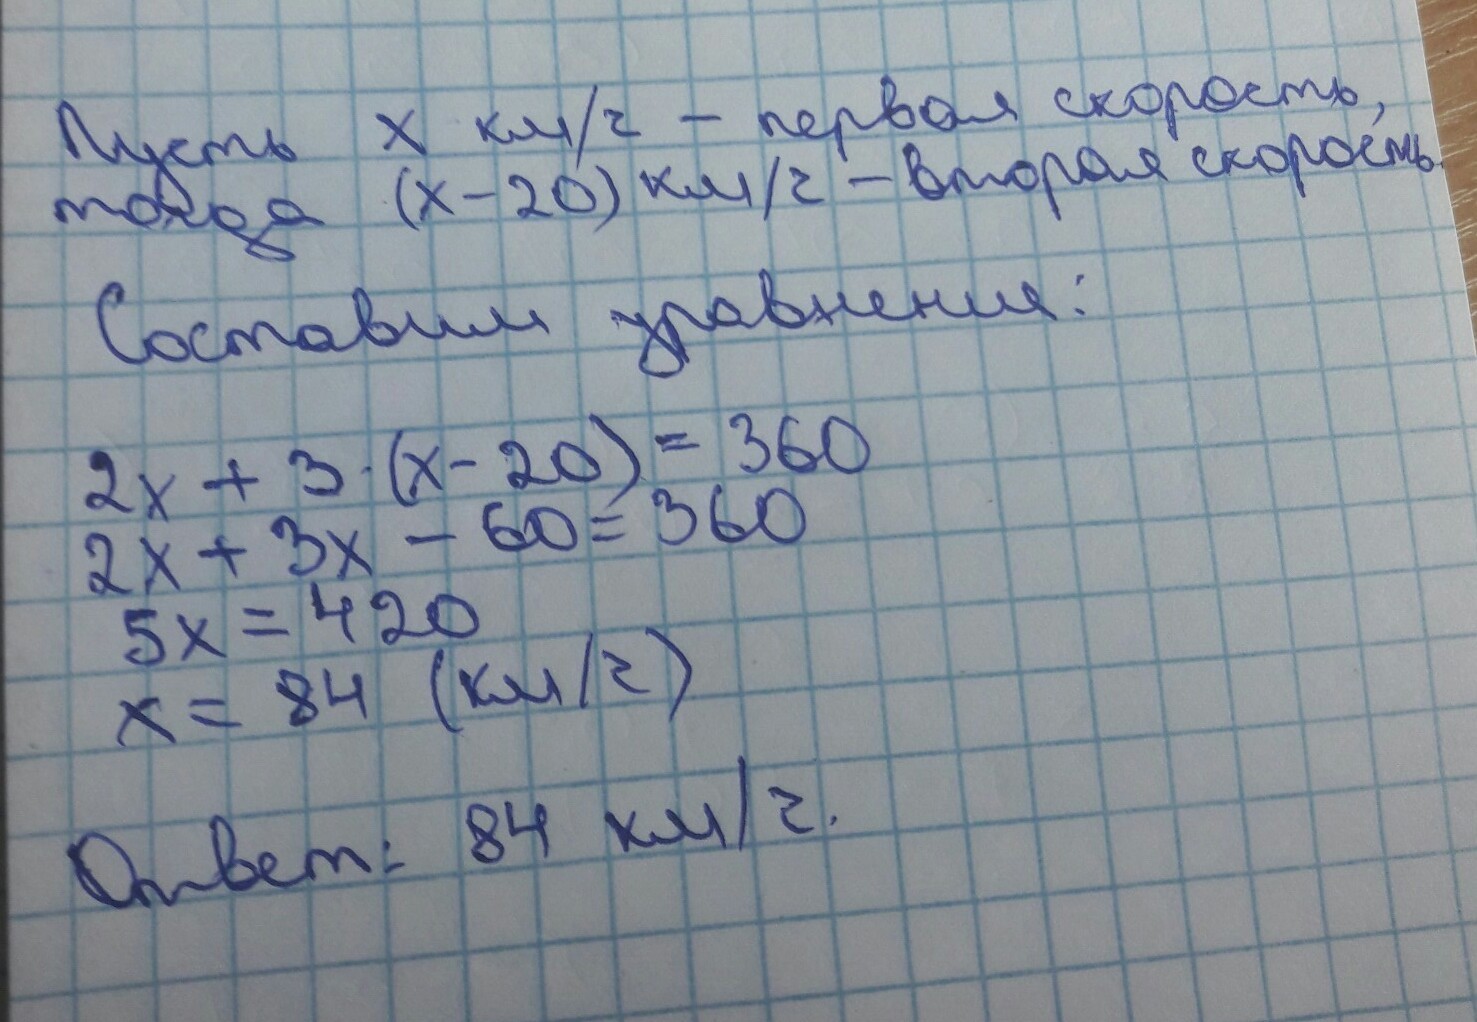 Пусть х км/ч - первая скорость,
тогда (х-20) км/ч - вторая скорость.
Составим уравнения:
2х + 3·(х-20) = 360
2х + 3х - 60 = 360
5х = 420
х = 84 (км/ч)
Ответ: 84 км/ч.